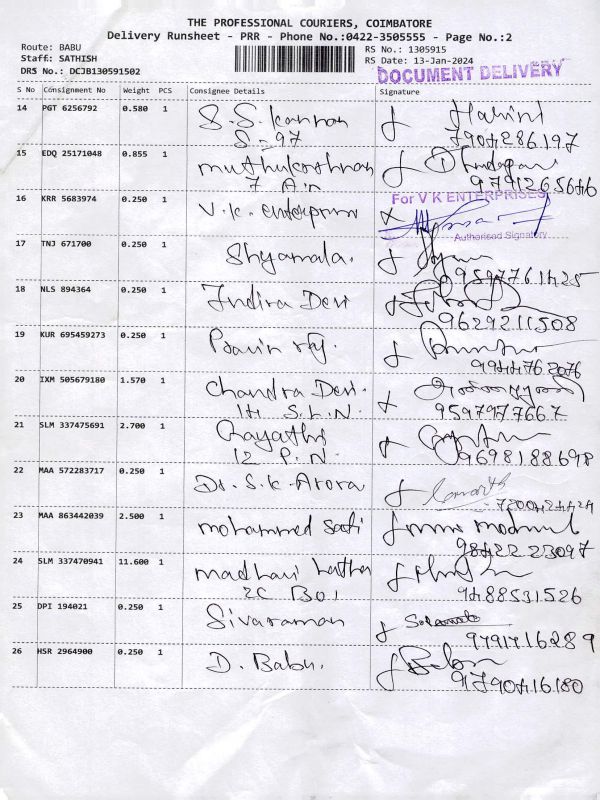 THE PROFESSIONAL COURIERS, COIMBATORE
Delivery Runsheet - PRR - Phone No.:0422-3505555 - Page No.:2
Route: BABU
Staff: SATHISH
DRS No.: DCJB130591502
RS No.: 1305915
RS Date: 13-Jan-2024
DOCUMENT DELIVERY
S No Consignment No Weight PCS Consignee Details Signature
14 PGT 6256792 0.580 1 S.S. Kannan
S-97 7904286197
15 EDQ 25171048 0.855 1 muthukrishnan
16 KRR 5683974 0.250 1 V.K. enterprises For V K ENTERPRISES
Authorised Signatory
17 TNJ 671700 0.250 1 Shyamala.
18 NLS 894364 0.250 1 Indira Devi
9629211508
19 KUR 695459273 0.250 1
9944762076
20 IXM 505679180 1.570 1 Chandra Devi.
9597977667
21 SLM 337475691 2.700 1 Gayathri
12 P.N. 9698188698
22 MAA 572283717 0.250 1 Dr. S.K. Arora
23 MAA 863442039 2.500 1 mohammed safi
9842223097
24 SLM 337470941 11.600 1 madhavi latha
9488531526
25 DPI 194021 0.250 1 Sivaraman
9791716289
26 HSR 2964900 0.250 1 D. Babu.
9790416180